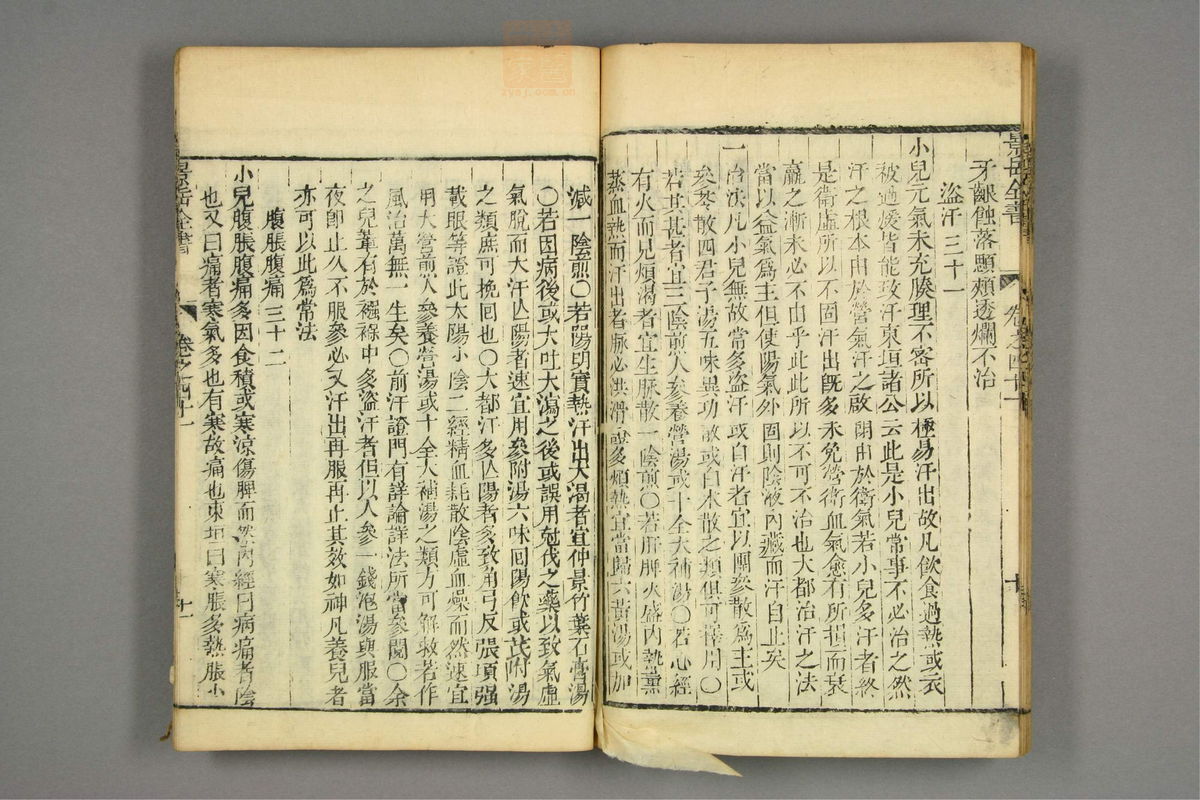 景岳全書
卷之四十一
牙齦蝕落顋頰透爛不治
盜汗三十一
小兒元氣未充腠理不密所以極易汗出故凡飲食過熱或衣
被過煖皆能致汗東垣諸公云此是小兒常事不必治之然
汗之根本由於營氣汗之啟閉由於衛氣若小兒多汗者終
是衛虛所以不固汗出既多未免營衛血氣愈有所損而衰
羸之漸未必不由乎此此所以不可不治也大都治汗之法
當以益氣為主但使陽氣外固則陰液內藏而汗自止矣
一治法凡小兒無故常多盜汗或自汗者宜以團參散為主或
參苓散四君子湯五味異功散或白朮散之類俱可擇用○
若其甚者宜三陰煎人參養營湯或十全大補湯○若心經
有火而見煩渴者宜生脈散一陰煎○若肝脾火盛內熱熏
蒸血熱而汗出者脈必洪滑證多煩熱宜當歸六黃湯或加
減一陰煎○若陽明實熱汗出大渴者宜仲景竹葉石膏湯
○若因病後或大吐大瀉之後或誤用尅伐之藥以致氣虛
氣脫而大汗亾陽者速宜用參附湯六味回陽飲或芪附湯
之類庶可挽回也○大都汗多亾陽者多致角弓反張項强
戴眼等證此太陽少陰二經精血耗散陰虛血燥而然速宜
用大營煎人參養營湯或十全大補湯之類方可解救若作
風治萬無一生矣○前汗證門有詳論詳法所當參閱○余
之兒輩有於襁褓中多盜汗者但以人參一錢泡湯與服當
夜卽止久不服參必又汗出再服再止其效如神凡養兒者
亦可以此為常法
腹脹腹痛三十二
小兒腹脹腹痛多因食積或寒涼傷脾而然內經曰病痛者陰
也又曰痛者寒氣多也有寒故痛也東垣曰寒脹多熱脹少
景岳全書
卷之四十一
十一